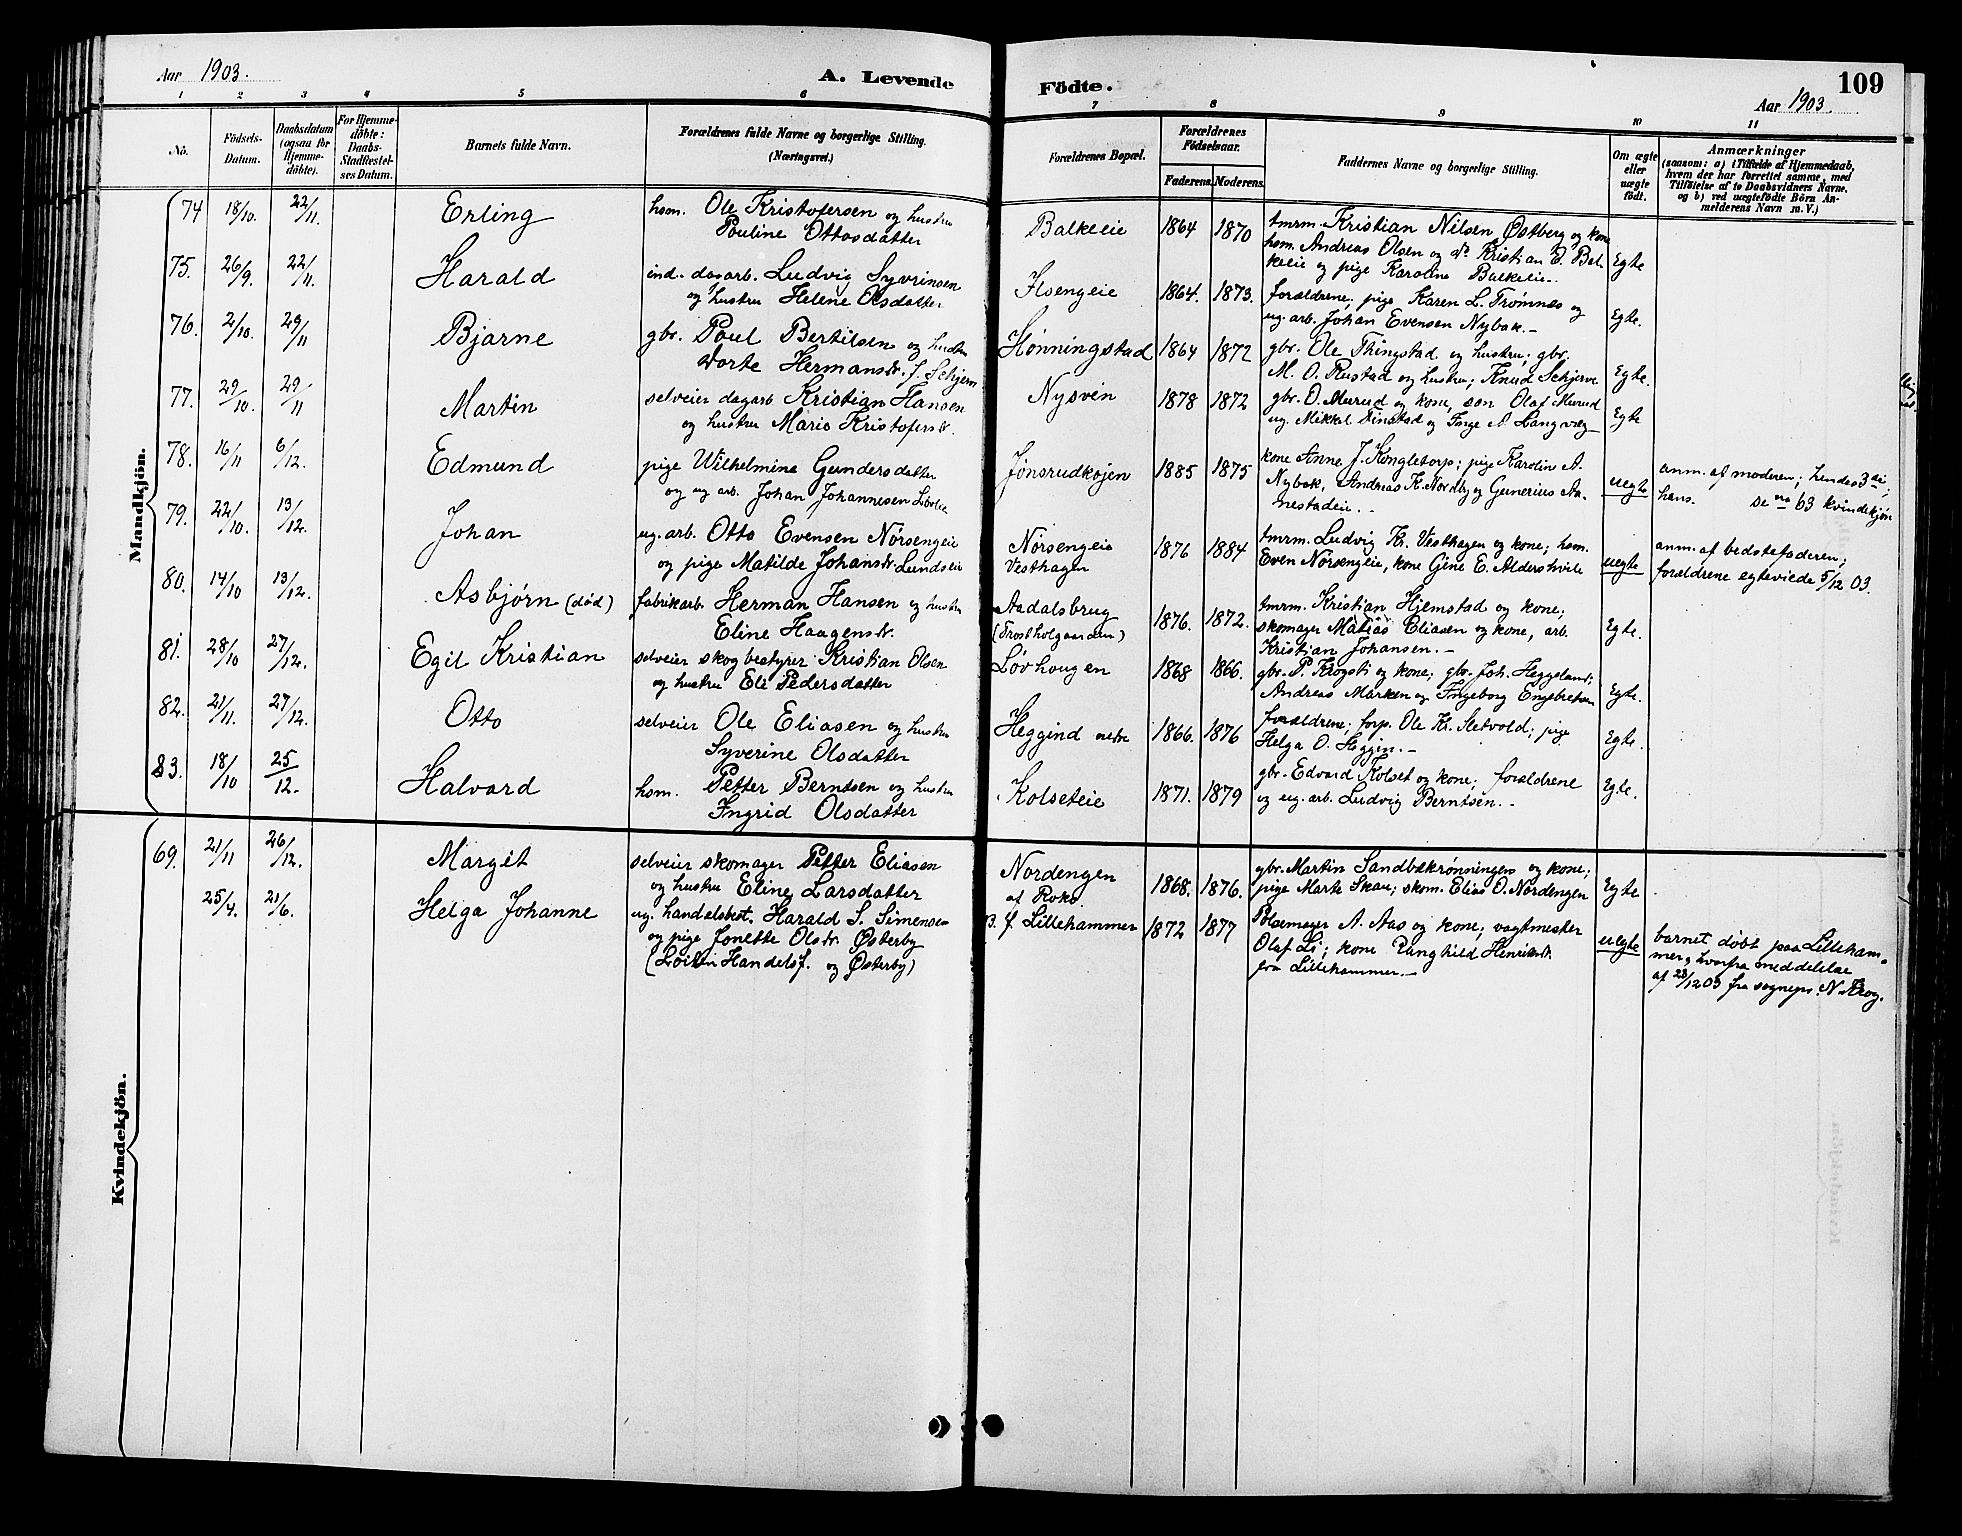 Aar 1903.
A. Levende
Födte.
109
Aar 1903.
1 2 3 4 5 6 7 8 9 10 11
No.
Födsels-
Datum.
Daabsdatum
(ogsaa for
Hjemme-
döbte).
For Hjemme-
döbte:
Daabs-
Stadfæstel-
ses Datum.
Barnets fulde Navn.
Forældrenes fulde Navne og borgerlige Stilling.
(Næringsvei.)
Forældrenes Bopæl.
Forældrenes
Födselsaar.
Faderens. Moderens.
Faddernes Navne og borgerlige Stilling.
Om ægte
eller
uægte
födt.
Anmærkninger
(saasom: a) i Tilfælde af Hjemmedaab,
hvem der har forrettet samme, med
Tilföielse af to Daabsvidners Navne.
og b) ved uægtefödte Börn An-
melderens Navn m. V.)
Mandkjön.
74 18/10. 22/11. Erling
hsm. Ole Kristofersen og hustru
Pauline Ottosdatter
Balkeeie 1864 1870
tmrm. Kristian Nilsen Østberg og kone
hsm. Andreas Olsen og do Kristian O. Bal-
keeie og pige Karoline Balkeeie.
Egte
75. 26/9. 22/11. Harald
ind. dagarb. Ludvig Syvrinsen
og hustru Helene Olsdatter
Ilsengeie 1864. 1873.
forældrene; pige Karen L. Trømnes og
ug. arb. Johan Evensen Nybak.-
Egte.
76. 2/10. 29/11 Bjarne
gbr. Poul Bertilsen og hustru
Dorte Hermansdr. f. Schjerv
Hønningstad 1864 1872
gbr. Ole Thingstad og hustru; gbr.
M. O. Rustad og hustru; Knud Schjerve
Egte.
77. 29/10. 29/11 Martin
selveier dagarb Kristian Hansen
og hustru Marie Kristofersdr.
Nysvén 1878 1872
gbr. O. Murud og kone, søn Olaf Murud
ug. Mikkel Finstad og Inge A Langvæg-
Egte
78. 16/11 6/12. Edmund
pige Wilhelmine Gundersdatter
og ug arb. Johan Johannesen
Jønsrudkojen 1885 1875
kone Anne J. Kongletorp; pige Karolin A.
Nybak, Andreas K. Nordby og Gunerius Aa-
nestadeie.-
uegte
anm. af moderen; hendes 3die;
hans. se no 63 kvindekjøn
79. 22/10. 13/12. Johan
ug. arb. Otto Evensen Nörsengeie
og pige Matilde Johansdr. Lundseie
Nörsengeie
Vesthagen
1876 1884
tmrm. Ludvig Kr. Vesthagen og kone; hsm.
Even Nörsengeie, kone Gine E. Alderslyst
uegte
anm. af bedstefaderen;
forældrene egteviede 5/12 03.
80. 14/10 13/12. Asbjørn (død)
fabrikarb. Herman Hansen og hustru
Eline Haagensdr.
Aadalsbrug
(Frostholgaarden)
1876. 1872.
tmrm. Kristian Hjemstad og kone;
skomager Matias Eliasen og kone, arb.
Kristian Johansen.-
Egte.
81. 28/10 27/12. Egil Kristian
selveier skogbestyrer Kristian Olsen
og hustru Eli Pedersdatter
Løvhougen 1868 1866.
gbr. P. Krogsti og kone; gbr. Joh. Heggelund;
Andreas Marken og Ingeborg Engebretsen
Egte.
82. 21/11. 27/12. Otto
selveier Ole Eliasen og hustru
Syverine Olsdatter
Heggind nedre 1866. 1876
forældrene; forp. Ole Kr. Sletvold; pige
Helga O. Heggin.-
Egte.
83. 18/10 25/12. Halvard
hsm. Petter Berntsen og hustru
Ingrid Olsdatter
Kolseteie 1871. 1879
gbr. Edvard Kolset og kone; forældrene
og ug. arb. Ludvig Berntsen.-
Egte.
Kvindekjön.
69. 21/11 26/12. Margit
selveier skomager Petter Eliasen
og hustru Eline Larsdatter
Nordengen
af Roko.
1868. 1876.
gbr. Martin Sandbækrønningen og kone;
pige Marte Skau; skom. Elias O. Nordengen
Egte
25/4. 21/6. Helga Johanne
ug. handelsbest. Harald S. Simensen
og pige Jonette Olsdr. Østerby
(Löiten Handelsf. og Østerby)
B. f. Lillehammer 1872 1877
Pølsemager A. Aas og kone; vagtmester
Olaf Li; kone Ranghild Henriksdr.
fra Lillehammer.-
uegte
barnet døbt paa Lilleham-
mer, hvorfra meddelelse
af 28/12 03 fra sogneps. N. Krog.